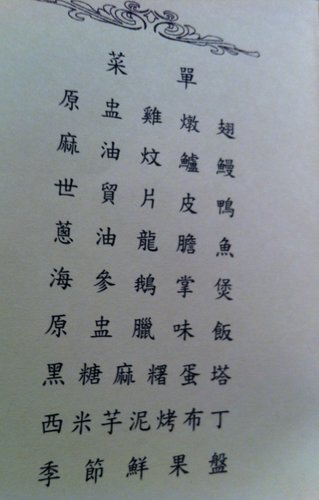 菜單
原盅雞燉翅
麻油炆鱸鰻
世貿片皮鴨
蔥油龍膽魚
海參鵝掌煲
原盅臘味飯
黑糖麻糬蛋塔
西米芋泥烤布丁
季節鮮果盤